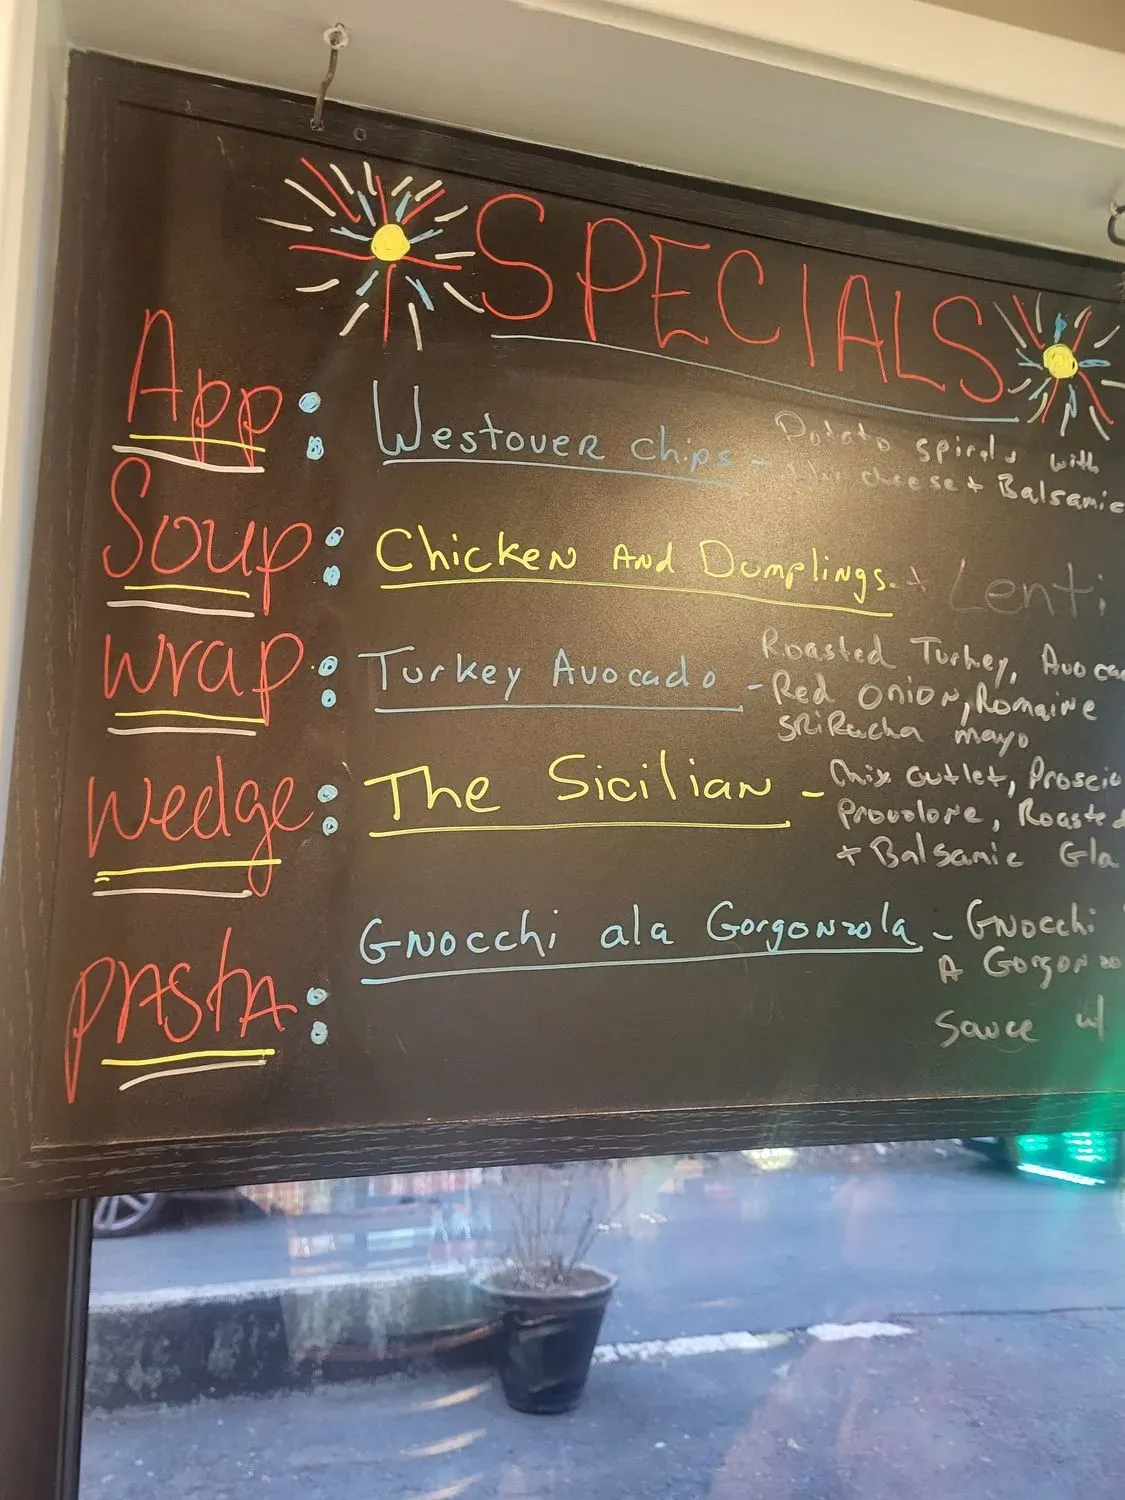 SPECIALS
App: Westover chips - Potato spirals with
cheese + Balsamic
Soup: Chicken And Dumplings. + Lenti
Wrap: Turkey Avocado - Roasted Turkey, Avoca
Red onion, Romaine
SRiRacha mayo
Wedge: The Sicilian - Chix cutlet, Prosciu
Provolone, Roasted
+ Balsamic Gla
PAStA: GNocchi ala GorgoNzola - GNocchi
A GorgoNzo
Sauce w/